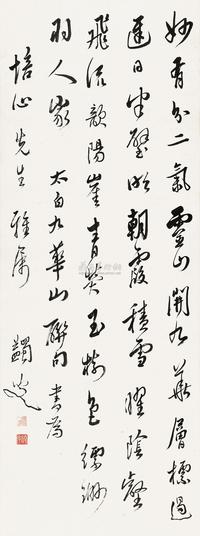 妙有分二氣靈山開九華層標遏
遲日半壁明朝霞積雪曜陰壑
飛流歕陽崖青熒玉樹色縹緲
羽人家 太白九華山聯句書為
培心先生 雅屬